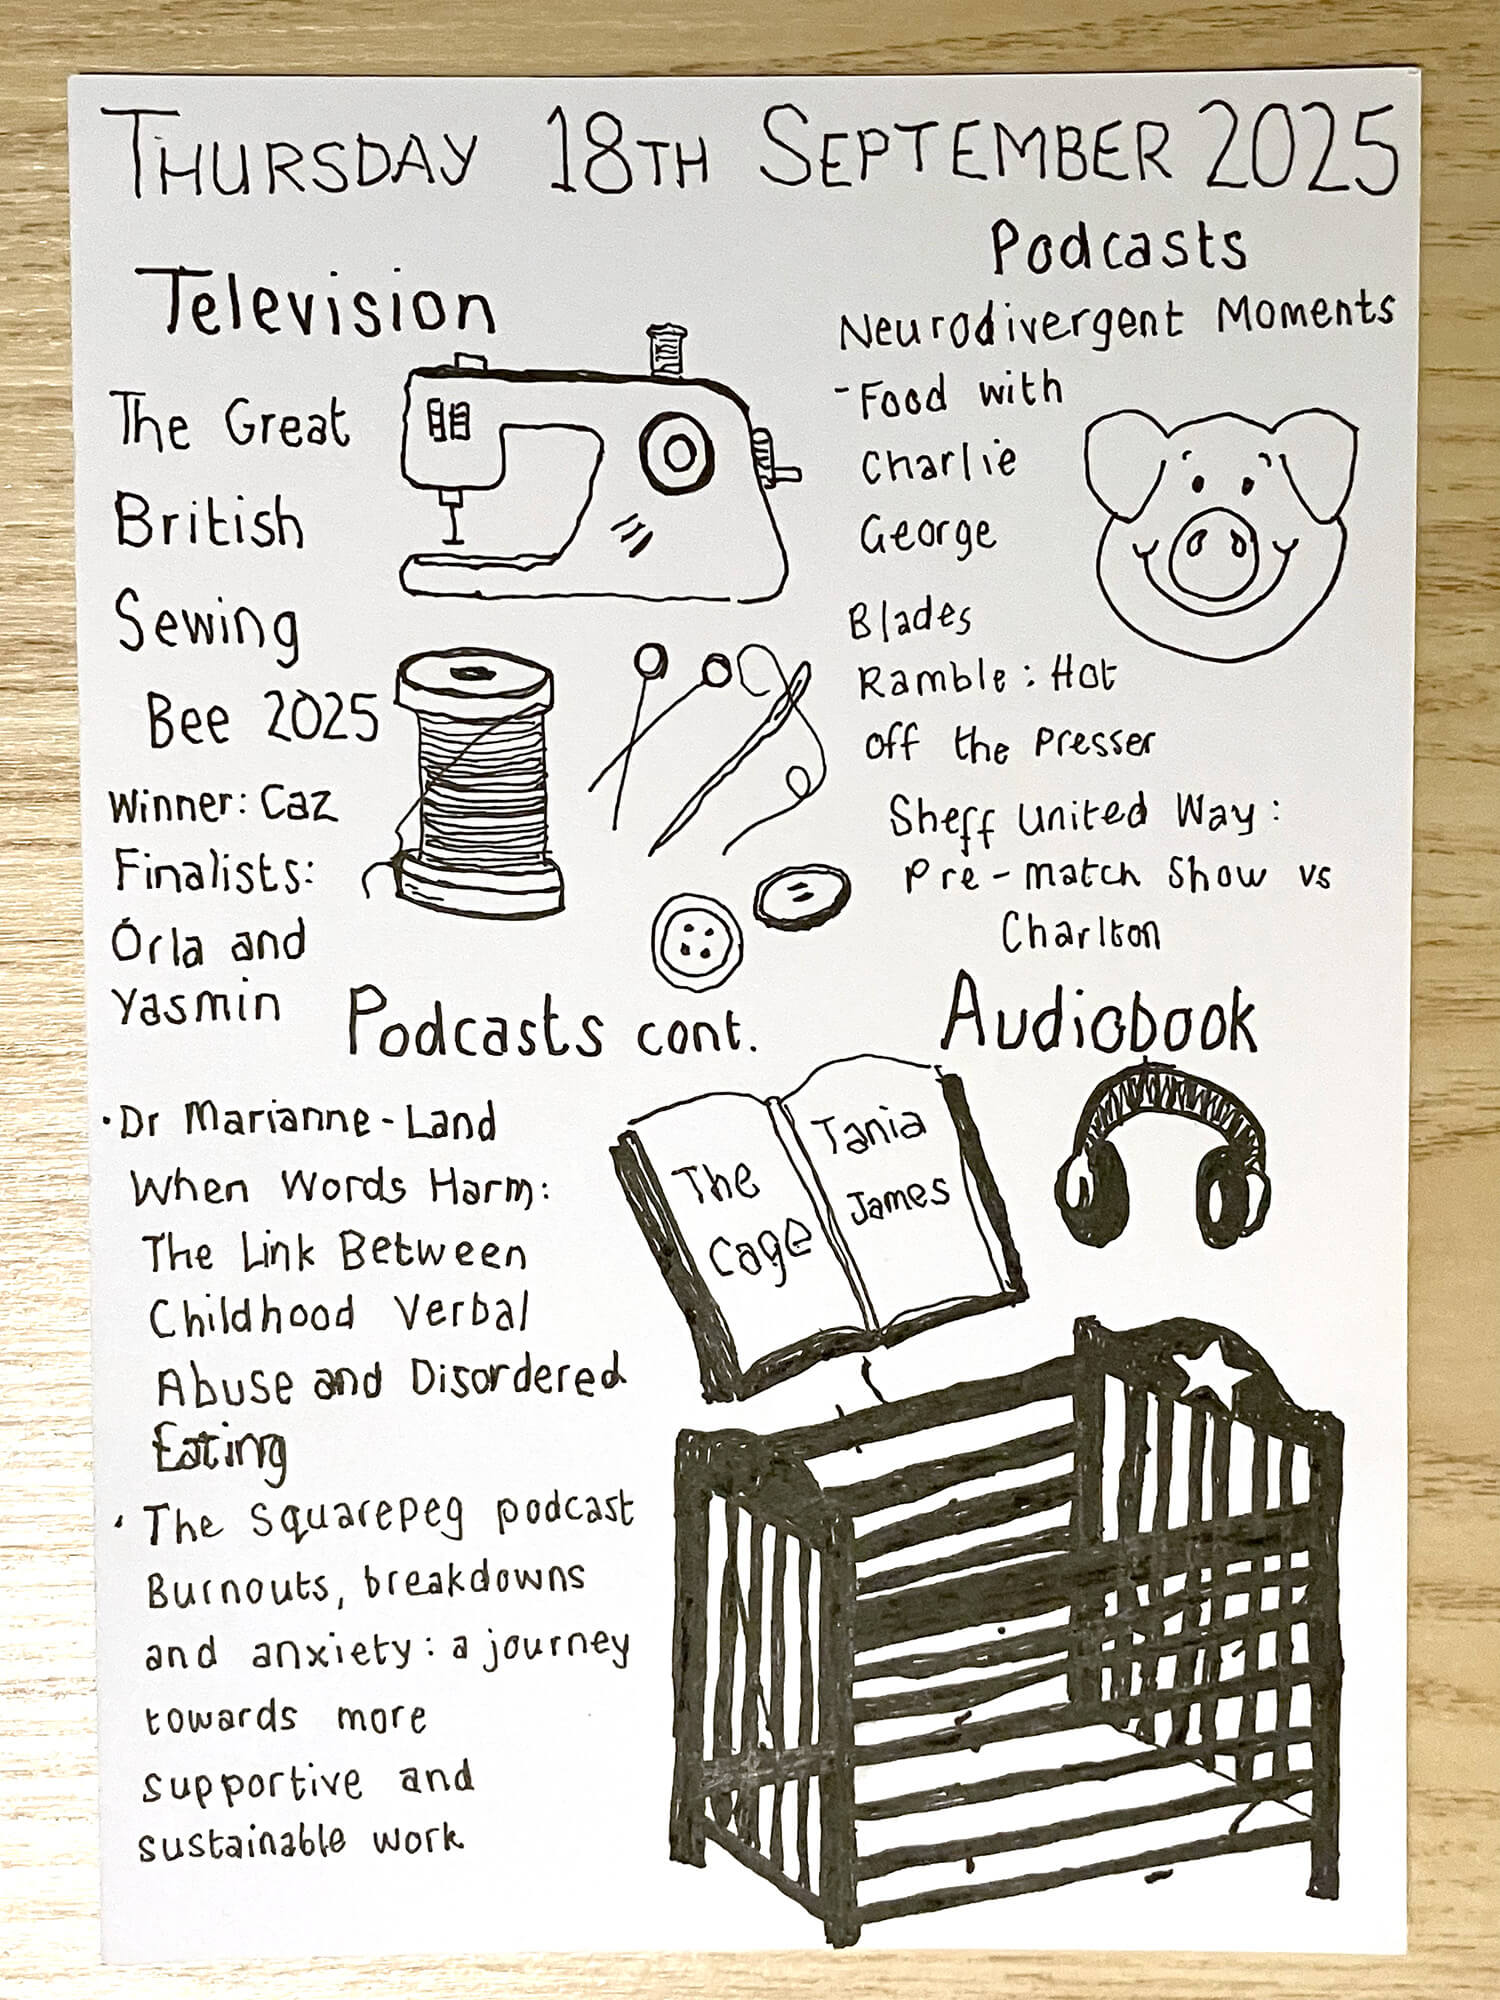 THURSDAY 18TH SEPTEMBER 2025
Television
The Great
British
Sewing
Bee 2025
Winner: Caz
Finalists:
Órla and
Yasmin
Podcasts
Neurodivergent Moments
- Food with
Charlie
George
Blades
Ramble: Hot
off the Presser
Sheff United Way:
Pre-match Show vs
Charlton
Podcasts cont.
• Dr Marianne-Land
When Words Harm:
The Link Between
Childhood Verbal
Abuse and Disordered
Eating
• The Squarepeg podcast
Burnouts, breakdowns
and anxiety: a journey
towards more
supportive and
sustainable work
Audiobook
The
Cage
Tania
James